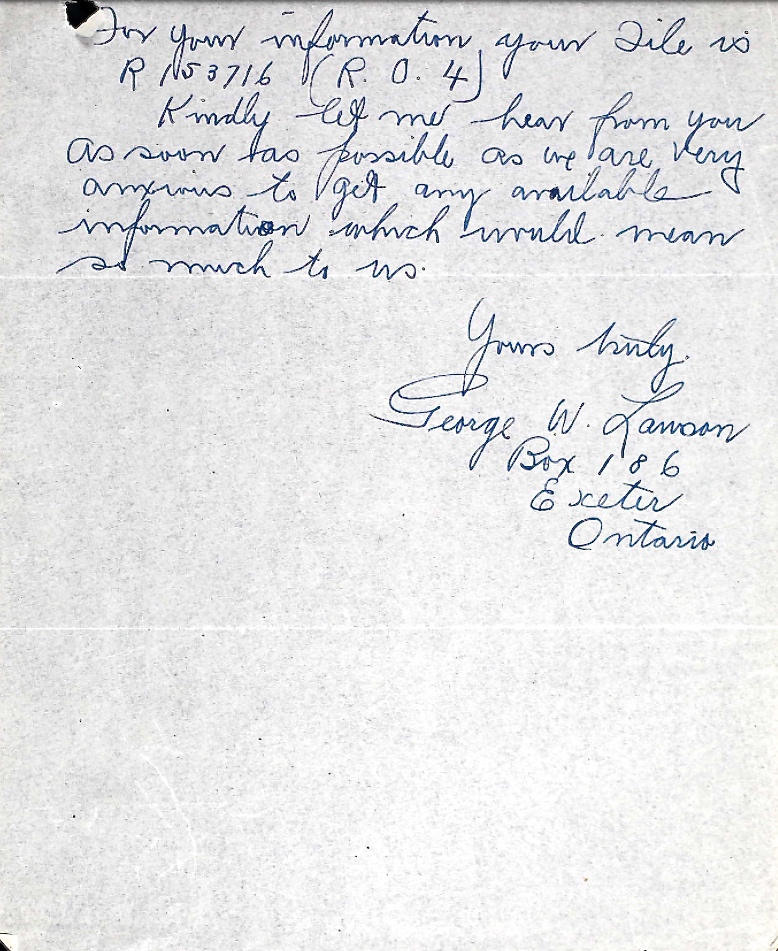 For your information your File is
R 153716 (R. O. 4)
Kindly let me hear from you
as soon as possible as we are very
anxious to get any available
information which would mean
so much to us.
Yours truly.
George W. Lawson
Box 186
Exeter
Ontario